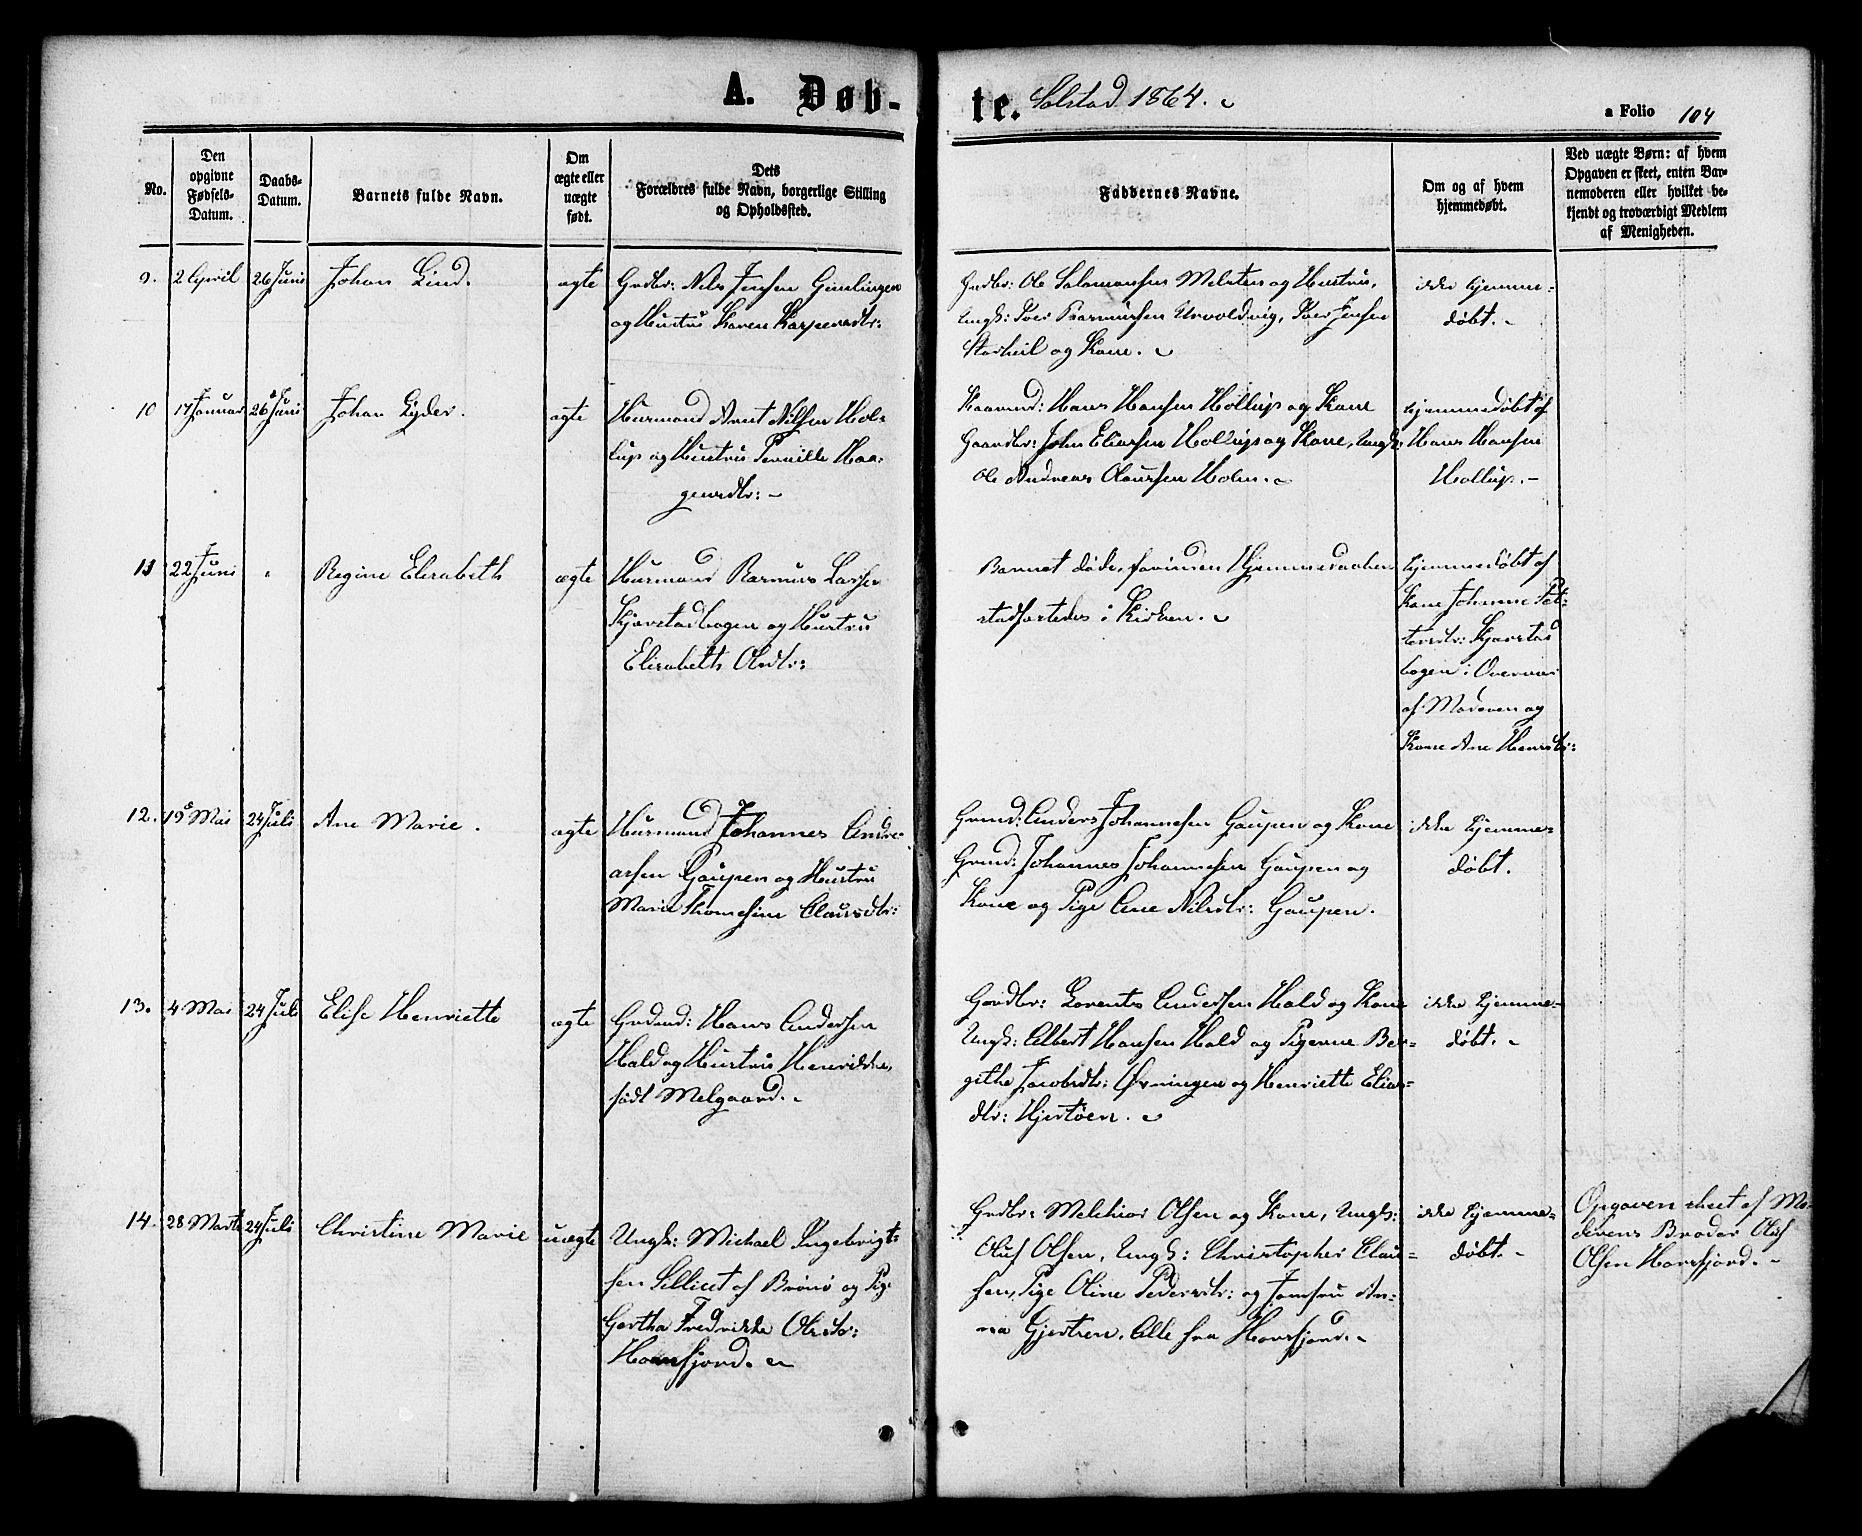 A. Døb-te. Solstad 1864.
a Folio 104
No.
Den opgivne Fødsels-Datum.
Daabs-Datum.
Barnets fulde Navn.
Om ægte eller uægte født.
Dets Forældres fulde Navn, borgerlige Stilling og Opholdssted.
Faddernes Navne.
Om og af hvem hjemmedøbt.
Ved uægte Børn: af hvem Opgaven er skeet, enten Barnemoderen eller hvilket bekjendt og troværdigt Medlem af Menigheden.
9. 2 April 26 Juni Johan Lind. ægte
Grdbr: Nils Jensen Gimlingen
og Hustru Karen Kaspersdtr:
Grdbr: Ole Salamonsen Melsten og Hustru,
Ungk: Peer Rasmussen Urvoldvig, Peer Jensen
Storheil og Kone.
ikke hjemme-
døbt.
10 17 Januar 26 Juni Johan Lyder. ægte
Husmand Arnt Nilsen Hol-
lup og Hustru Pernille Haa-
gensdtr:
Kaarmd: Hans Hansen Hollup og Kone
Gaardbr: John Eliassen Hollup og Kone, Ungk:
Ole Andreas Olaussen Holm.
hjemmedøbt af
Hans Hansen
Hollup.
11 22 Juni " Regine Elisabeth ægte
Husmand Rasmus Larsen
Kjærstadbogen og Hustru
Elisabeth Olsdtr:
Barnet døde, forinden Hjemmedaaben
stadfæstedes i Kirken.
hjemmedøbt af
Kone Johanne Pet-
tersdtr: Kjærstad
bogen i Overvær
af Moderen og
Kone Ane Hansdtr:
12. 19 Mai 24 Juli Ane Marie. ægte
Husmand Johannes Andre-
assen Gaupen og Hustru
Marie Thomesine Clausdtr:
Grmd: Anders Johannesen Gaupen og Kone
Grmd: Johannes Johannesen Gaupen og
Kone og Pige Ane Nilsdtr: Gaupen.
ikke hjemme-
døbt.
13. 4 Mai 24 Juli Elise Henriette ægte
Grdmd: Hans Andersen
Hald og Hustru Henrikke,
født Melgaard.
Gardbr: Lorents Andersen Hald og Kone
Ungk: Albert Hansen Hald og Pigerne Ber-
githe Jacobsdtr: Øvningen og Henriette Elias-
dtr: Hjertøen.
ikke hjemme-
døbt.
14. 28 Marts 24 Juli Christine Marie uægte
Ungk: Michael Ingebrigt-
sen Silliset af Brønø og Pige
Gertha Fredrikke Olsdtr:
Horsfjord.
Grdbr: Melchior Olsen og Kone, Ungk:
Oluf Olsen, Ungk: Christopher Clau-
sen, Pige Oline Pedersdtr: og Jomfru An-
na Gjertsen. Alle fra Horsfjord.
ikke hjemme-
døbt.
Opgaven skeet af Mo-
derens Broder Oluf
Olsen Horsfjord.